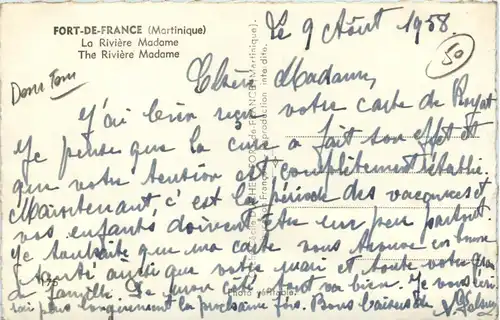 FORT-DE-FRANCE (Martinique)
La Rivière Madame
The Rivière Madame
Le 9 Août 1958
50
Dom Tom
Chère Madame,
J'ai bien reçu votre carte de Royat
Je pense que la cure a fait son effet et
que votre tention est complètement établie.
Maintenant c'est la période des vacances et
vos enfants doivent être un peu partout.
Je souhaite que ma carte vous trouve en bonne
santé ainsi que votre mari et toute votre
famille. De mon côté tout va bien. Je vous
plus longuement la prochaine fois. Bons baisers de
Photo véritable.
reproduction interdite.